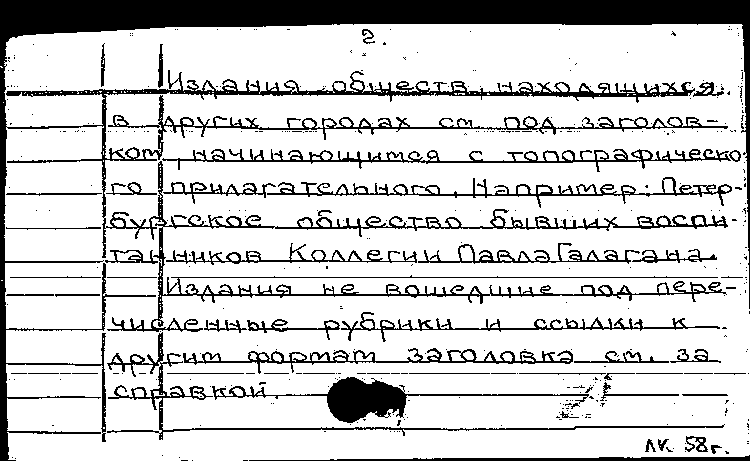 2.
Издания обществ, находящихся
в других городах см. под заголов-
ком, начинающимся с топографическо-
го прилагательного. Например: Петер-
бургское общество бывших воспи-
танников Коллегии Павла Галагана.
Издания не вошедшие под пере-
численные рубрики и ссылки к
другим формам заголовка см. за
справкой.
ЛК. 58г.